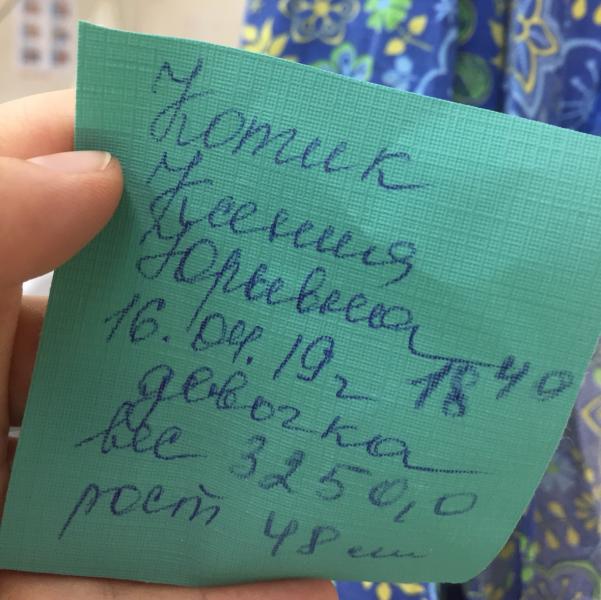 Котик
Ксения
Юрьевна
16.04.19г 18 40
девочка
вес 3250,0
рост 48 см